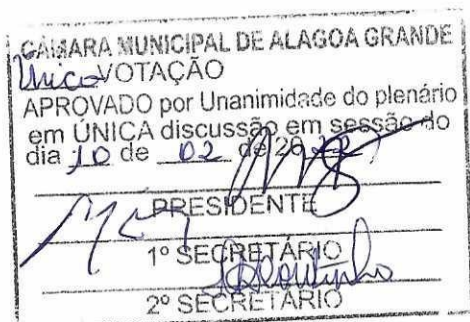 CÂMARA MUNICIPAL DE ALAGOA GRANDE
Única VOTAÇÃO
APROVADO por Unanimidade do plenário
em ÚNICA discussão em sessão do
dia 10 de 02 de 20
PRESIDENTE
1º SECRETÁRIO
2º SECRETÁRIO